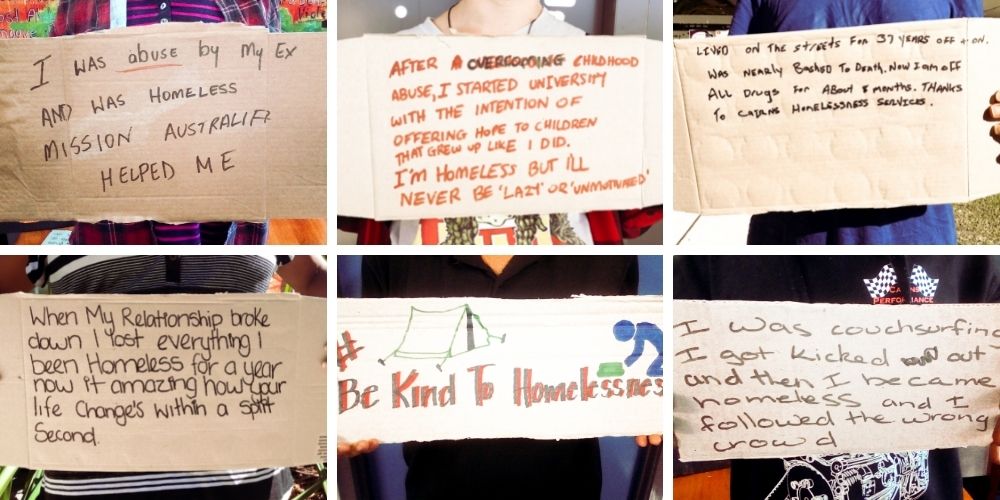 I WAS abuse by My Ex
AND WAS HOMELESS
MISSION AUSTRALIA
HELPED ME
AFTER A OVERCOMING CHILDHOOD
ABUSE, I STARTED UNIVERSITY
WITH THE INTENTION OF
OFFERING HOPE TO CHILDREN
THAT GREW UP LIKE I DID.
I'M HOMELESS BUT I'LL
NEVER BE 'LAZY' OR 'UNMOTIVATED'
LIVED ON THE STREETS FOR 37 YEARS OFF + ON.
WAS NEARLY BASHED TO DEATH. NOW I AM OFF
ALL DRUGS FOR ABOUT 8 MONTHS. THANKS
TO CAIRNS HOMELESSNESS SERVICES.
When My Relationship broke
down I lost everything I
been Homeless for a year
now it amazing how your
life Change's within a split
Second.
#
Be Kind To Homelessness
PERFORMANCE
I was couchsurfing
I got kicked out
and then I became
homeless and I
followed the wrong
crowd